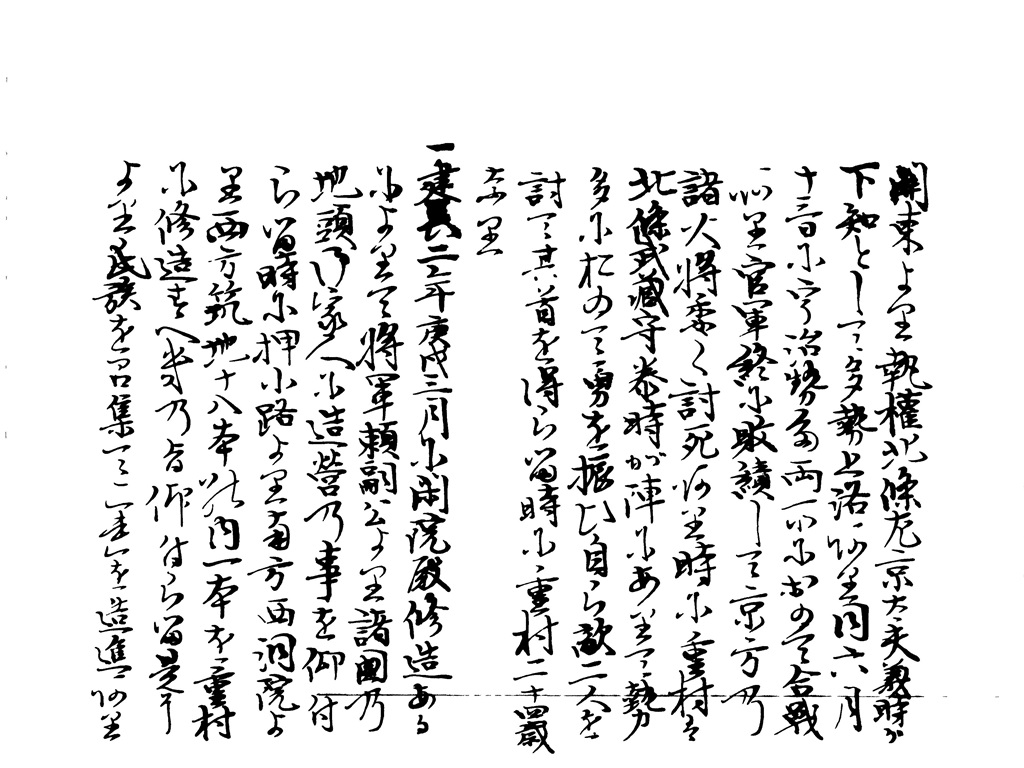 関東より執權北條左京大夫義時が
下知として多勢上洛あり同六月
十三日に宇治勢多両所において合戦
あり官軍終に敗績して京方乃
諸大将悉く討死あり時に重村は
北條武蔵守泰時が陣にありて勢
多において勇を振ひ自ら敵二人を
討て其首を得らる時に重村二十四歳
なり
一建長二年庚戌三月に閑院殿修造ある
によりて将軍頼嗣公より諸國乃
地頭御家人に造營乃事を仰付
らる時に押小路より南方西洞院よ
り西方筑地十八本の内一本を重村
に修造すへき乃旨仰付らる是に
より民族を召集て一本を造進あり